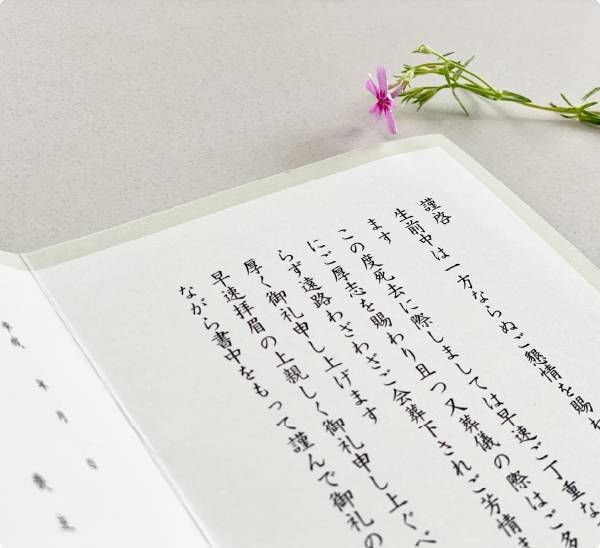 謹啓
生前中は一方ならぬご懇情を賜
ます
この度死去に際しましては早速ご丁重な
にご厚志を賜わり且つ又葬儀の際はご多
らず遠路わざわざご会葬下されご芳情
厚く御礼申し上げます
早速拝眉の上親しく御礼申し上ぐべ
ながら書中をもって謹んで御礼の
年 月 日